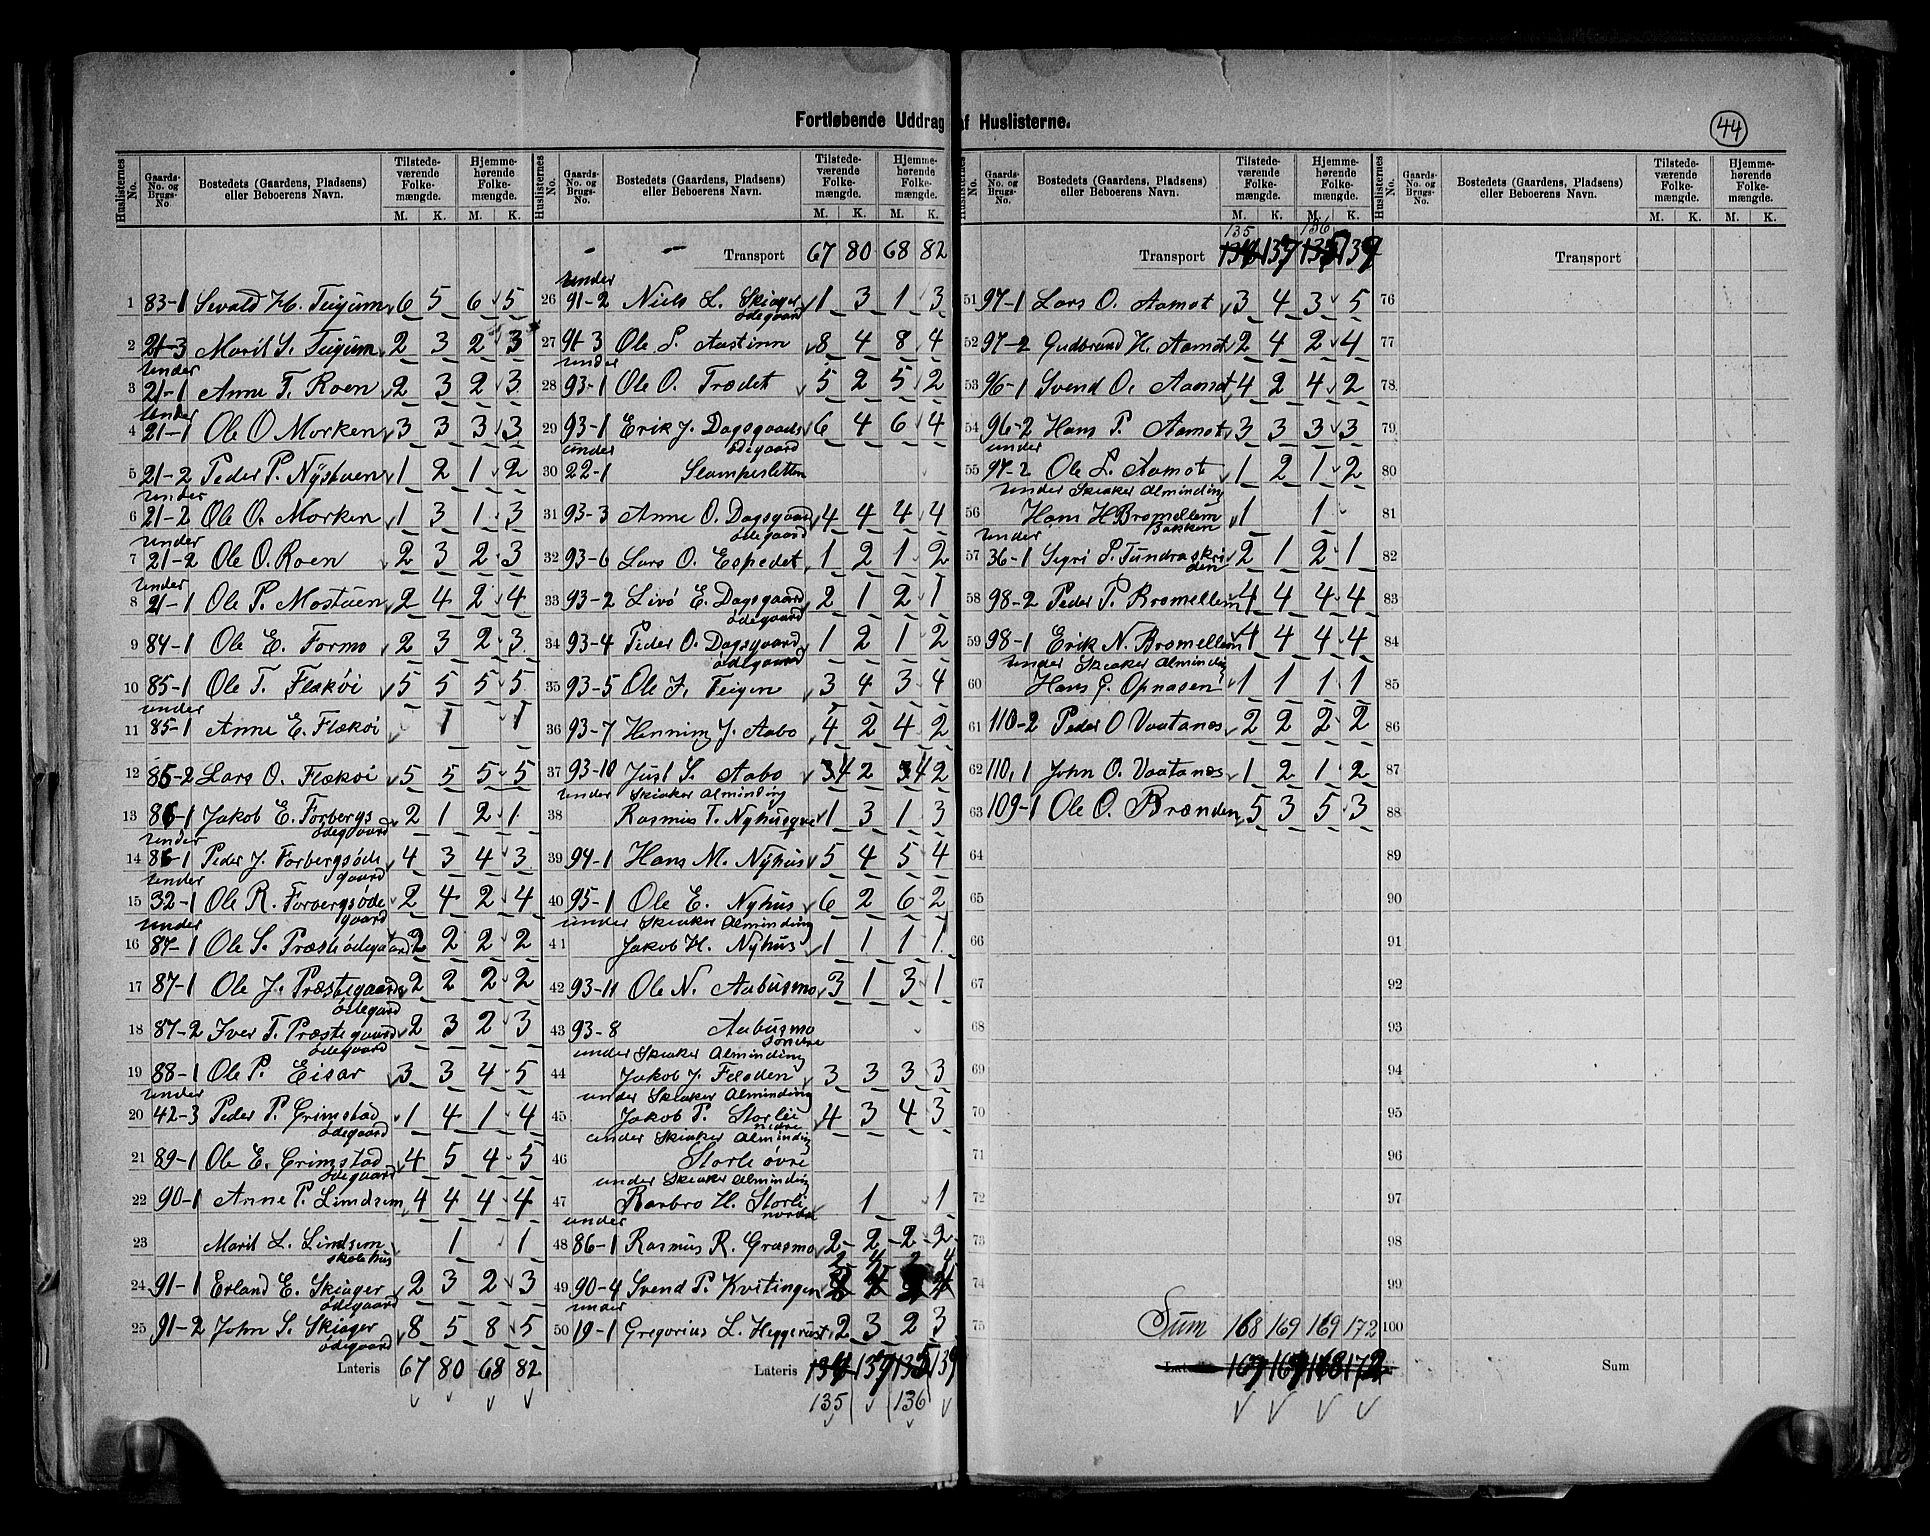 Fortløbende Uddrag af Huslisterne.
44
Huslisternes No. Gaards- No. og Brugs- No. Bostedets (Gaardens, Pladsens) eller Beboerens Navn. Tilstede- værende Folke- mængde. M. K. Hjemme- hørende Folke- mængde. M. K.
1 83-1 Sevald H. Teigum 6 5 6 5
2 21-3 Marit S. Teigum 2 3 2 3
under
3 21-1 Anne T. Roen 2 3 2 3
under
4 21-1 Ole O Morken 3 3 3 3
5 21-2 Peder P. Nystuen 1 2 1 2
under
6 21-2 Ole O. Morken 1 3 1 3
under
7 21-2 Ole O. Roen 2 3 2 3
under
8 21-1 Ole P. Mostuen 2 4 2 4
9 84-1 Ole E. Formo 2 3 2 3
10 85-1 Ole T. Flækøi 5 5 5 5
under
11 85-1 Anne E. Flækøi 1 1
12 85-2 Lars O. Flækøi 5 5 5 5
13 86-1 Jakob E. Forbergs ødegaard 2 1 2 1
under
14 86-1 Peder J. Forbergsøde gaard 4 3 4 3
under
15 32-1 Ole R. Forbergsøde gaard 2 4 2 4
under
16 87-1 Ole S. Præstødegaard 2 2 2 2
17 87-1 Ole J. Præstegaards ødegaard 2 2 2 2
18 87-2 Iver T. Præstegaards ødegaard 2 3 2 3
19 88-1 Ole P. Eisar 3 3 4 5
under
20 42-3 Peder P. Grimstad ødegaard 1 4 1 4
21 89-1 Ole E. Grimstad ødegaard 4 5 4 5
22 90-1 Anne P. Lindsem 4 4 4 4
23 Marit L. Lindsem skolehus 1 1
24 91-1 Erland E. Skiager ødegaard 2 3 2 3
25 91-2 John S. Skiager ødegaard 8 5 8 5
Lateris 67 80 68 82
Huslisternes No. Gaards- No. og Brugs- No. Bostedets (Gaardens, Pladsens) eller Beboerens Navn. Tilstede- værende Folke- mængde. M. K. Hjemme- hørende Folke- mængde. M. K.
Transport 67 80 68 82
under
26 91-2 Niels L. Skiager ødegaard 1 3 1 3
27 91-3 Ole L. Aastinn 8 4 8 4
under
28 93-1 Ole O. Trædet 5 2 5 2
29 93-1 Erik J. Dagsgaards ødegaard 6 4 6 4
under
30 22-1 Stampesletten
31 93-3 Anne O. Dagsgaard ødegaard 4 4 4 4
32 93-6 Lars O. Espedet 1 2 1 2
33 93-2 Livø E. Dagsgaard ødegaard 2 1 2 1
34 93-4 Peder O. Dagsgaard ødegaard 1 2 1 2
35 93-5 Ole J. Teigen 3 4 3 4
36 93-7 Henning J. Aabo 4 2 4 2
37 93-10 Just S. Aabo 4 2 4 2
under Skiaker Alminding
38 Rasmus T. Nyhusqve 1 3 1 3
39 94-1 Hans M. Nyhus 5 4 5 4
40 95-1 Ole E. Nyhus 6 2 6 2
under Skiaker Alminding
41 Jakob H. Nyhus 1 1 1 1
42 93-11 Ole N. Aabusmo 3 1 3 1
43 93-8 Aabusmo søndre
under Skiaker Alminding
44 Jakob J. Flaaden 3 3 3 3
under Skiaker Alminding
45 Jakob P. Storlie nedre 4 3 4 3
under Skiaker Alminding
46 Storli øvre
under Skiaker Alminding
47 Barbro H. Storli nordre 1 1
under
48 86-1 Rasmus R. Græsmo 2 2 2 2
49 90-4 Svend P. Kvitingen 2 4 2 4
under
50 19-1 Gregorius L. Heggerust 2 3 2 3
Lateris 134 139 135 139
135 136
Huslisternes No. Gaards- No. og Brugs- No. Bostedets (Gaardens, Pladsens) eller Beboerens Navn. Tilstede- værende Folke- mængde. M. K. Hjemme- hørende Folke- mængde. M. K.
135 136
Transport 134 137 135 139
51 97-1 Lars O. Aamot 3 4 3 5
52 97-2 Gudbrand H. Aamot 2 4 2 4
53 96-1 Svend O. Aamot 4 2 4 2
54 96-2 Hans P. Aamot 3 3 3 3
under
55 97-2 Ole L. Aamot 1 2 1 2
under Skiaker Alminding
56 Hans H Bromellem Bakken 1 1
under
57 36-1 Sigri P. Tundraskri den 2 1 2 1
58 98-2 Peder P. Bromellem 4 4 4 4
59 98-1 Erik N. Bromellem 4 4 4 4
under Skiaker Alminding
60 Hans G. Opnasen 1 1 1 1
61 110-2 Peder O Vaatanæs 2 2 2 2
62 110,1 John O. Vaatanæs 1 2 1 2
63 109-1 Ole O. Brænden 5 3 5 3
64
65
66
67
68
69
70
71
72
73
74
75 Sum 168 169 169 172
Lateris 167 169 168 172
Huslisternes No. Gaards- No. og Brugs- No. Bostedets (Gaardens, Pladsens) eller Beboerens Navn. Tilstede- værende Folke- mængde. M. K. Hjemme- hørende Folke- mængde. M. K.
Transport
76
77
78
79
80
81
82
83
84
85
86
87
88
89
90
91
92
93
94
95
96
97
98
99
100
Sum